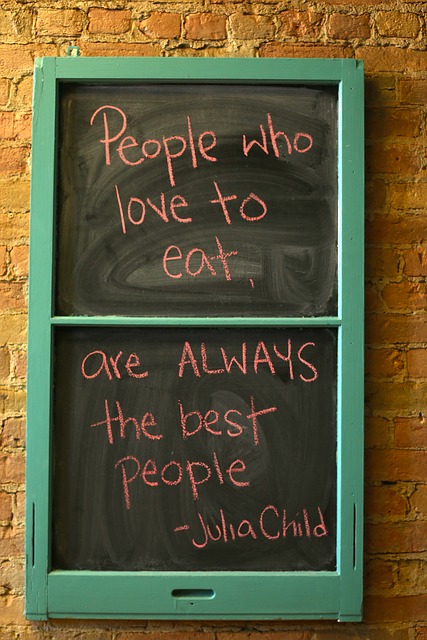 People who
love to
eat,
are ALWAYS
the best
people
-Julia Child